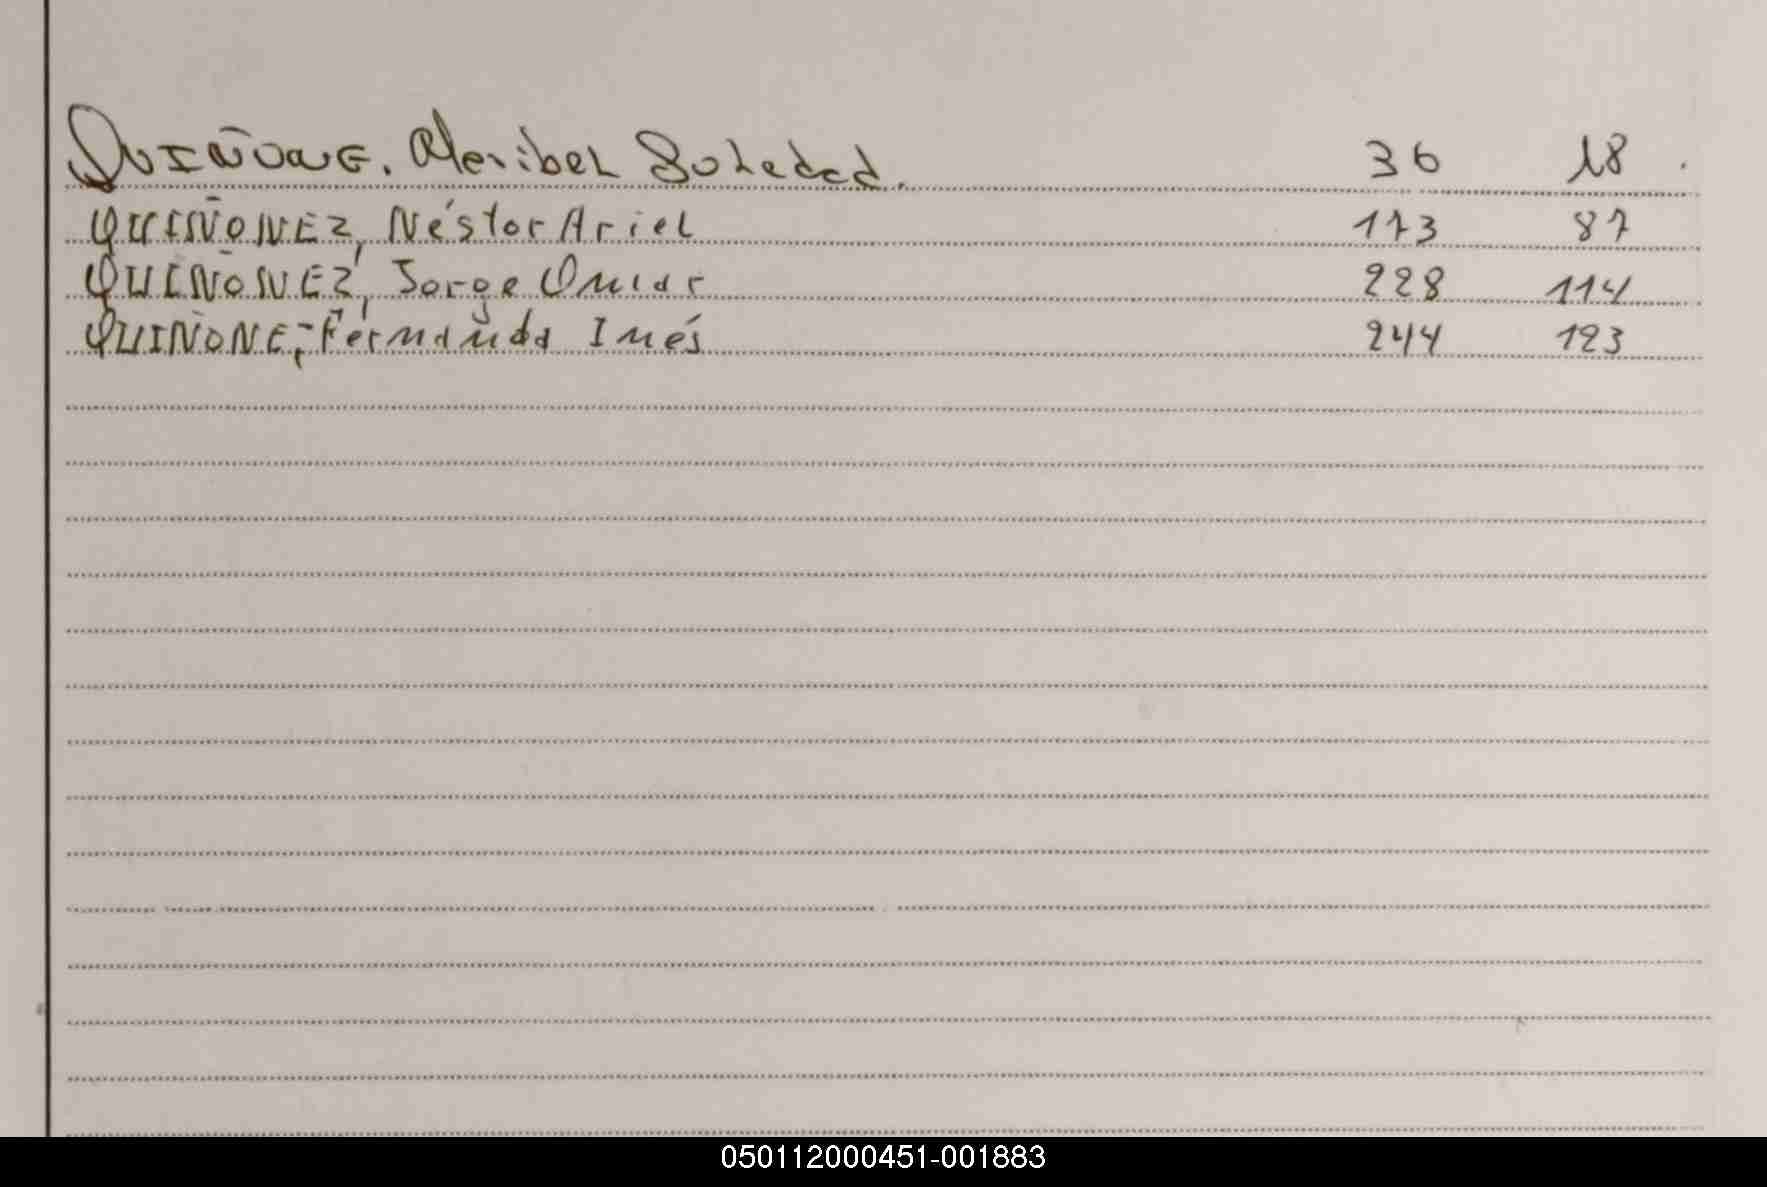 QUIÑONE. Maribel Soledad. 36 18
QUIÑONEZ, Néstor Ariel 173 87
QUIÑONEZ, Jorge Omar 228 114
QUIÑONE, Fernanda Inés 244 123
050112000451-001883